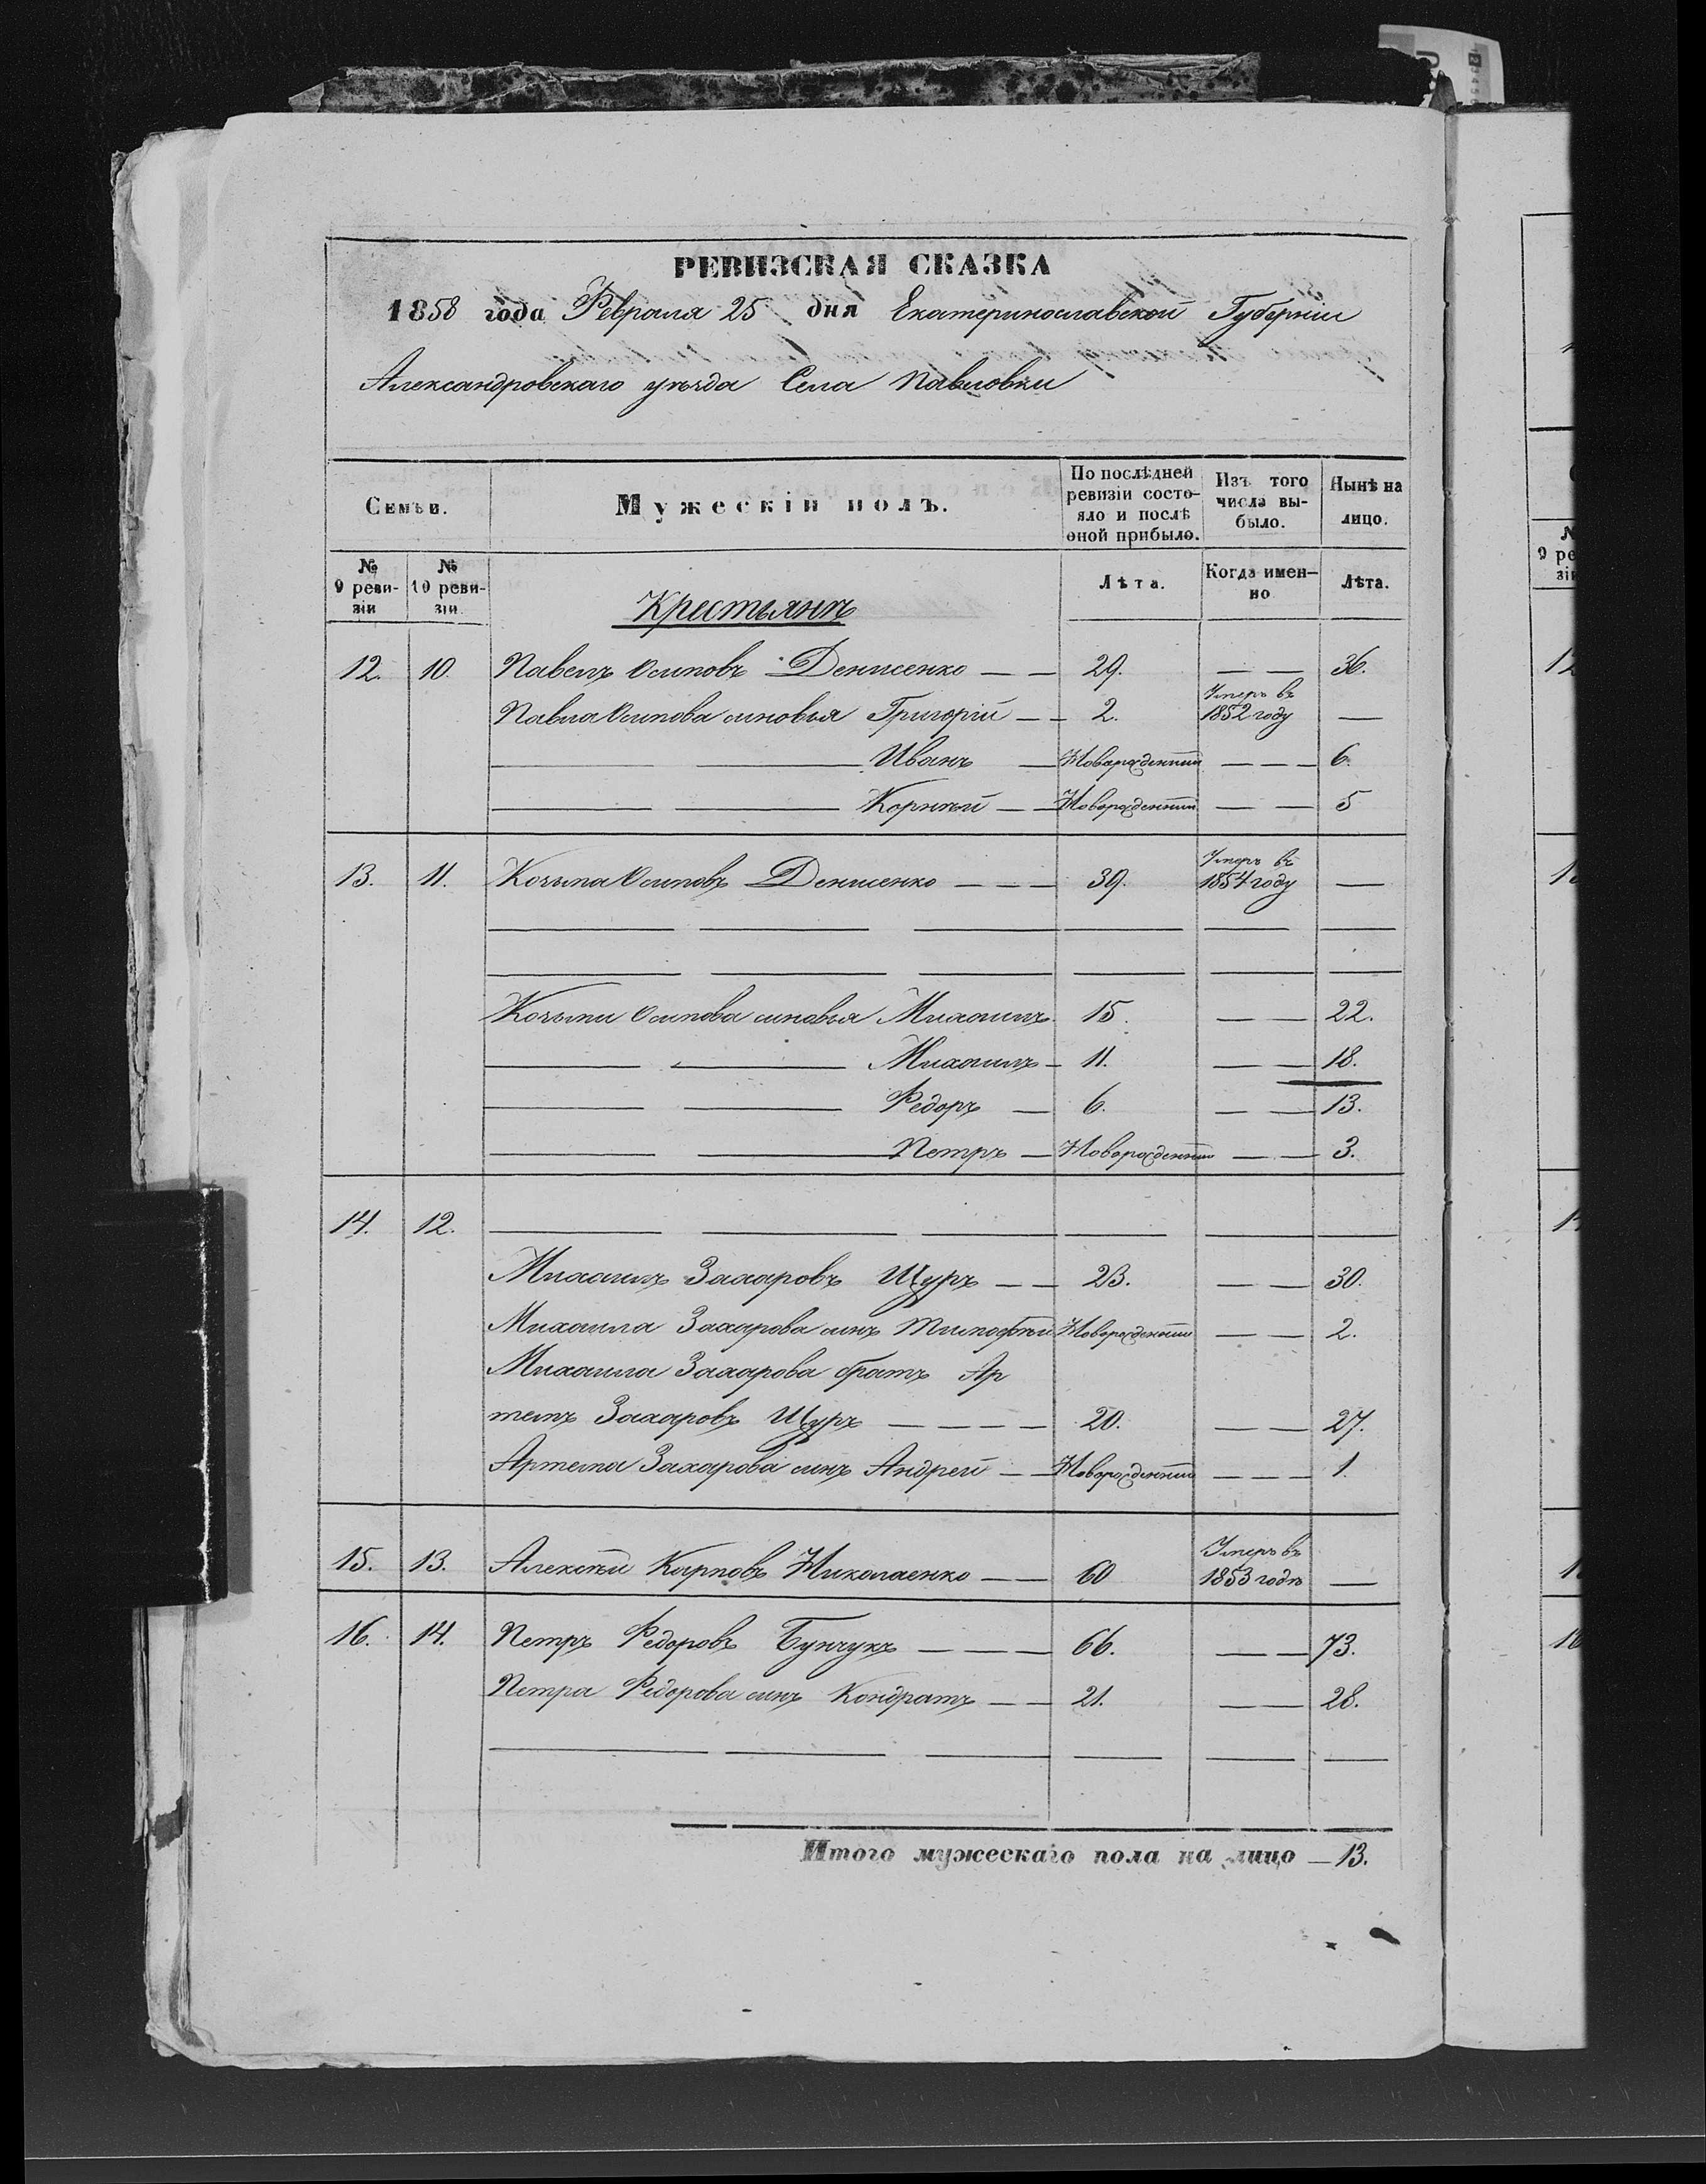 РЕВИЗСКАЯ СКАЗКА
1858 года Февраля 25 дня Екатеринославской Губерніи
Александровскаго уѣзда Села Павловки
Семьи.
Мужескій полъ.
По послѣдней ревизіи состо-
яло и послѣ
оной прибыло.
Изъ того
числа вы-
было.
Нынѣ на
лицо.
№ 9 реви-
зіи
№ 10 реви-
зіи
Крестьянъ
Лѣта.
Когда имен-
но
Лѣта.
12. 10. Павелъ Осиповъ Денисенко — — 29. — — 36.
Павла Осипова синовья Григорій — — 2. Умеръ въ 1852 году —
— — Иванъ — Новорожденный — — — 6.
— — Корнѣй — — Новорожденный — — 5
13. 11. Козьма Осиповъ Денисенко — — — 39. Умеръ въ 1854 году —
— — — — — —
— — — — — —
Козьми Осипова синовья Михаилъ 15. — — 22.
— — Михаилъ — 11. — — 18.
— — Федоръ — 6. — — 13.
— — Петръ — Новорожденный — — 3.
14. 12. — — — — — —
Михаилъ Захаровъ Щуръ — — 23. — — 30.
Михаила Захарова синъ Тимофѣй Новорожденный — — 2.
Михаила Захарова братъ Ар
темъ Захаровъ Щуръ — — — — 20. — — 27.
Артема Захарова синъ Андрей — — Новорожденный — — — 1.
15. 13. Алексѣй Карповъ Николаенко — — 60 Умеръ въ 1853 годѣ —
16. 14. Петръ Федоровъ Бунчукъ — — — 66. — — 73.
Петра Федорова синъ Кондратъ — — 21. — — 28.
— — — — — —
Итого мужескаго пола на лицо — 13.
№
9 ре
зіи